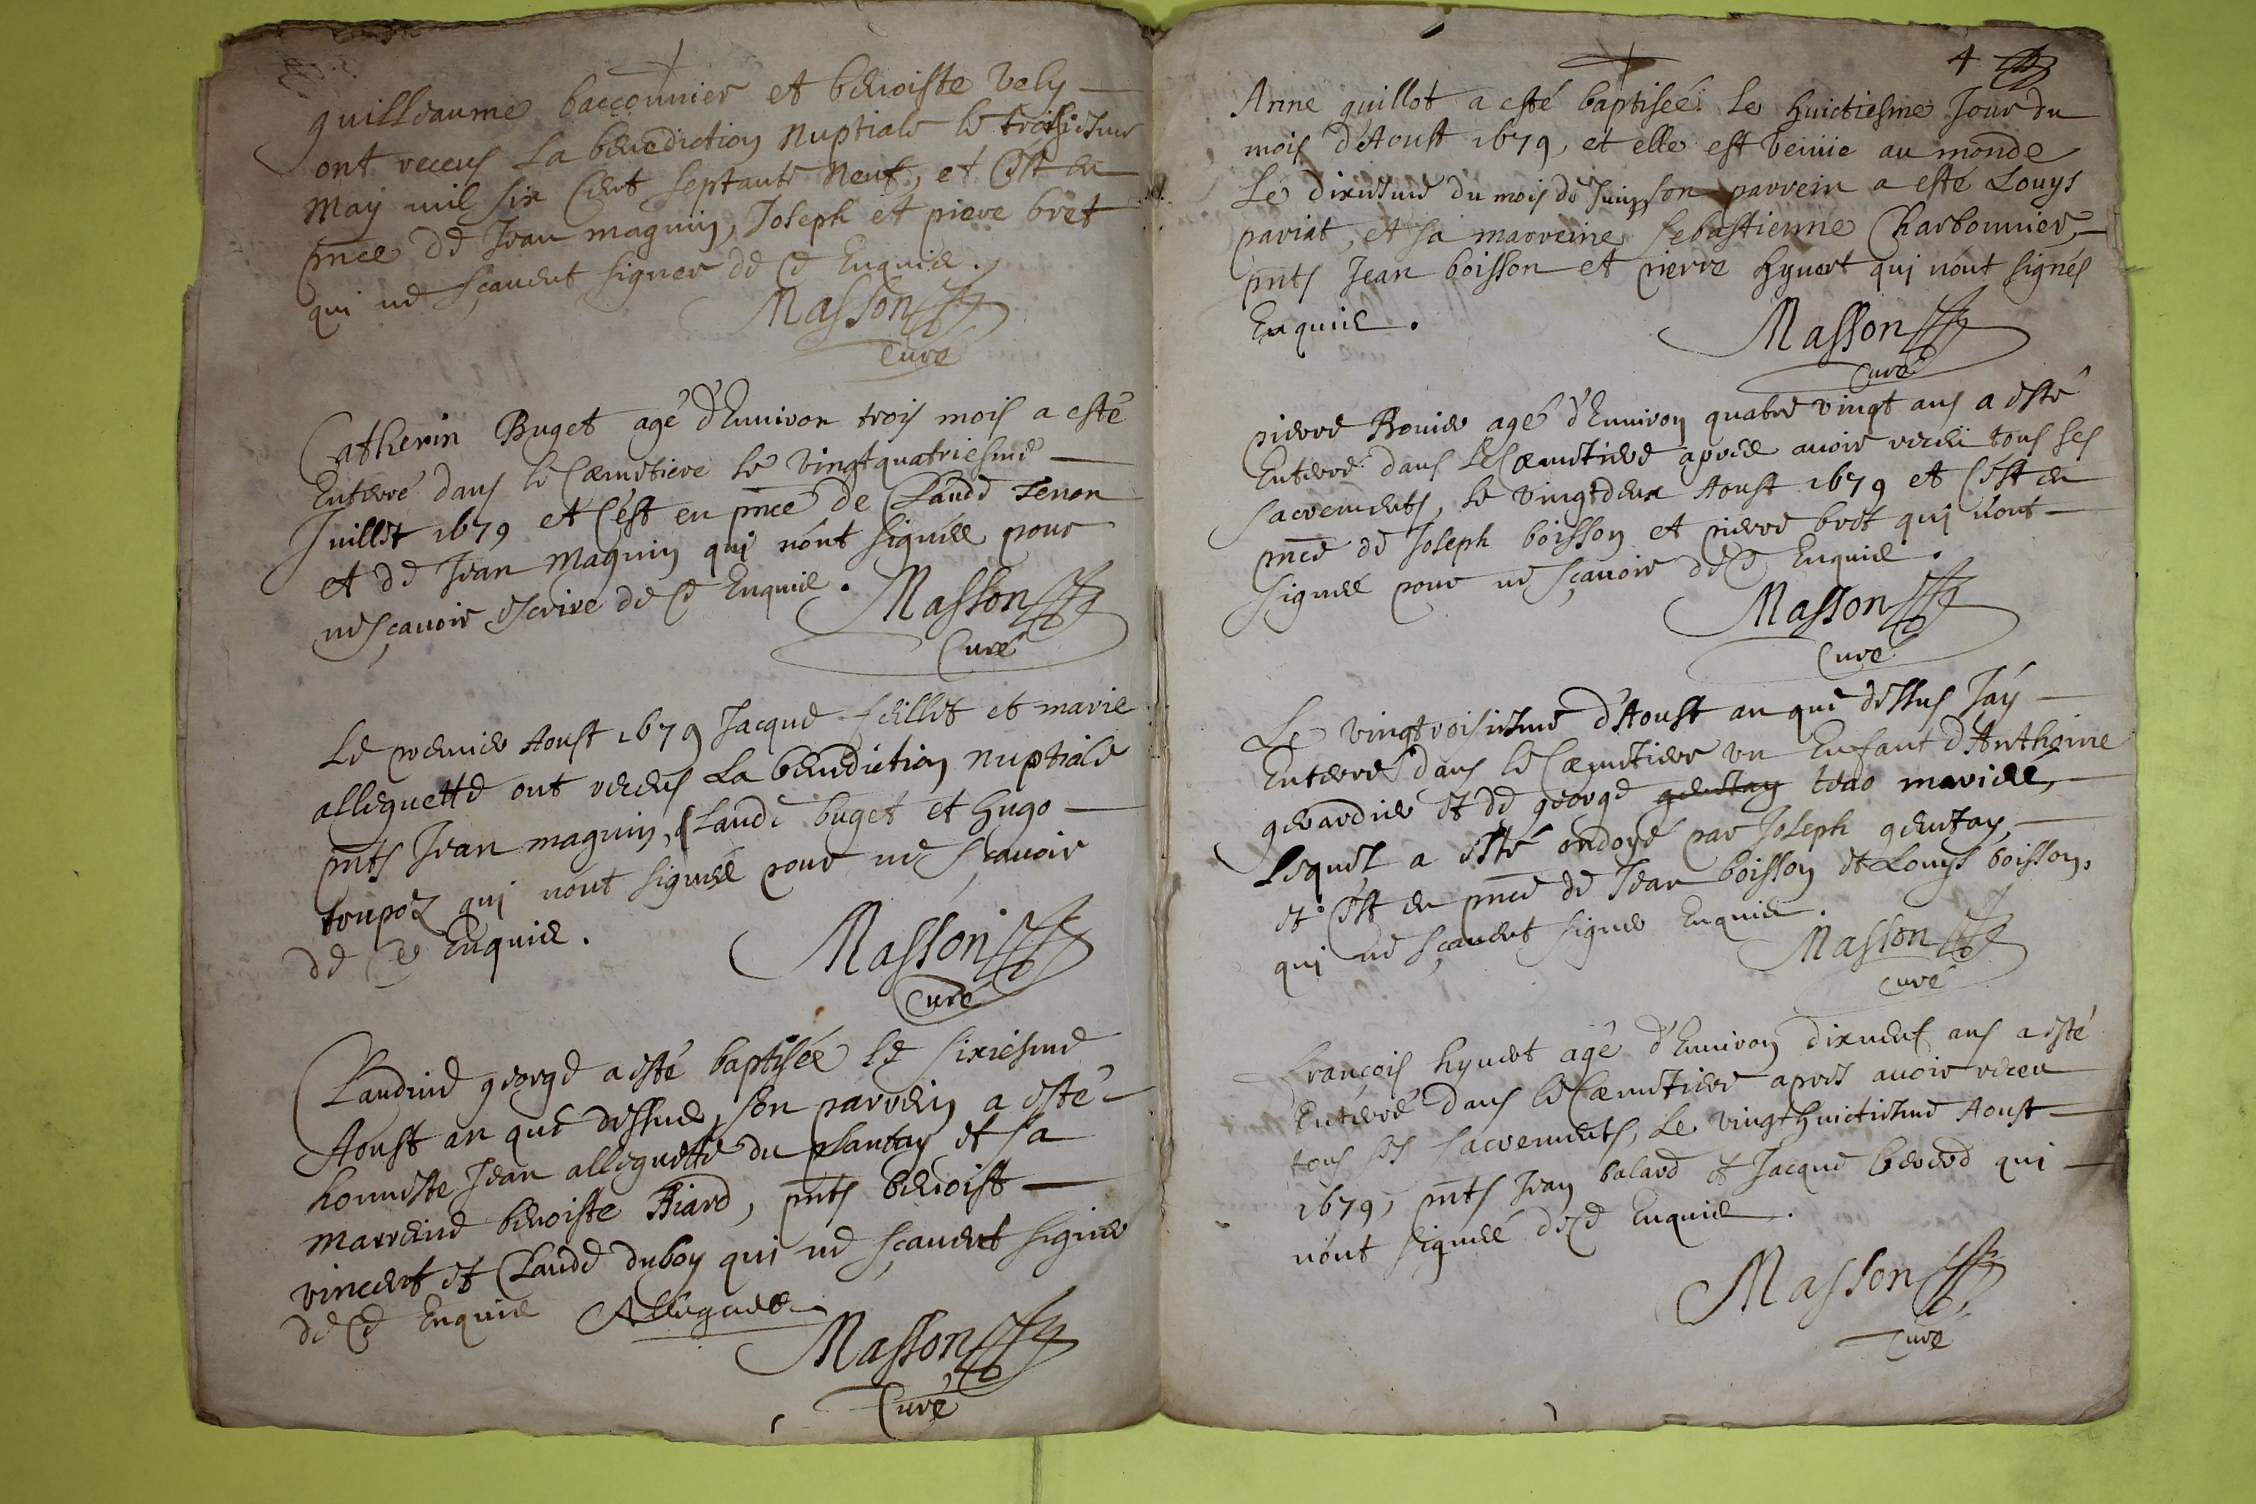 guilleaume bacconnier et benoiste vely
ont receus La benediction Nuptiale le troisiesme
May mil six Cent septante Neuf, et C'est en
pnce de Jean magnin, Joseph et piere bret
qui ne sçauent signer de ce Enquis.
Masson
Curé
Catherin Buget agé d'Enuiron trois mois a esté
Enterré dans le Cæmetiere le vingtquatriesme
Juillet 1679 et C'est en pnce de Claude Tenon
et de Jean Magnin qui n'ont signée pour
ne sçauoir escrire de ce Enquis.
Masson
Curé
Le premier Aoust 1679 Jacque feillet et marie
alleguette ont receus La benediction nuptiale
pnts Jean magnin, Claude buget et hugo
toupoz qui nont signée pour ne sçauoir
de ce Enquis.
Masson
Curé
Claudine george a esté baptisée le sixiesme
Aoust an que dessus, son parrein a esté
honneste Jean alleguette du plantay et sa
marreine benoiste Riard, pnts benoist
vincent et Claude duboy qui ne sçauent signer
de ce Enquis Alleguette
Masson
Curé
4
Anne guillot a esté baptisée Le huictiesme Jour du
mois d'Aoust 1679, et elle est venüe au monde
Le dixiesme du mois de Juin, son parrein a esté Louys
pariat, et sa marreine Sebastienne Charbonnier,
pnts Jean boisson et pierre hyuert qui nont signés
Enquis.
Masson
Curé
pierre Rouier agé d'Enuiron quatre vingt ans a esté
Enterré dans Le Cæmetiere aprèe auoir receü tous ses
sacrements, le vingtdeux Aoust 1679 et C'est en
pnce de Joseph boisson et pierre bret qui n'ont
signée pour ne sçauoir de ce Enquis.
Masson
Curé
Le vingtroisiesme d'Aoust an que dessus J'ay
Enterré dans le Cæmetiere un Enfant d'Anthoine
gerardier et de george gentay teno mariée,
Lequel a esté ondoyé par Joseph gentay,
et C'est en pnce de Jean boisson et Louys boisson,
qui ne sçauent signer Enquis.
Masson
Curé
François hyuert agé d'Enuiron dixneuf ans a esté
Enterré dans le Cæmetiere apres auoir receu
tous ses sacrements, Le vingthuictiesme Aoust
1679, pnts Jean balard et Jacque bererd qui
n'ont signée de ce Enquis.
Masson
Curé